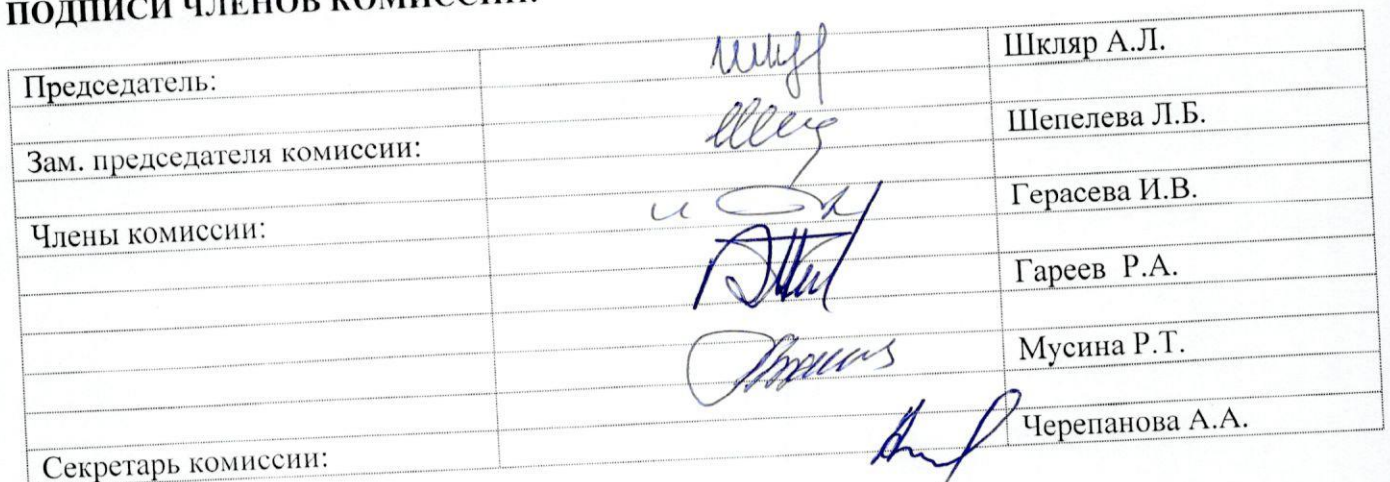 ПОДПИСИ ЧЛЕНОВ КОМИССИИ:
Председатель: Шкляр А.Л.
Зам. председателя комиссии: Шепелева Л.Б.
Члены комиссии: Герасева И.В.
Гареев Р.А.
Мусина Р.Т.
Секретарь комиссии: Черепанова А.А.